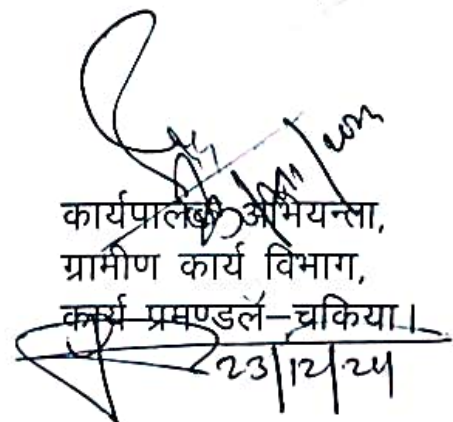 कार्यपालक अभियन्ता,
ग्रामीण कार्य विभाग,
कार्य प्रमण्डल–चकिया।
23/12/24